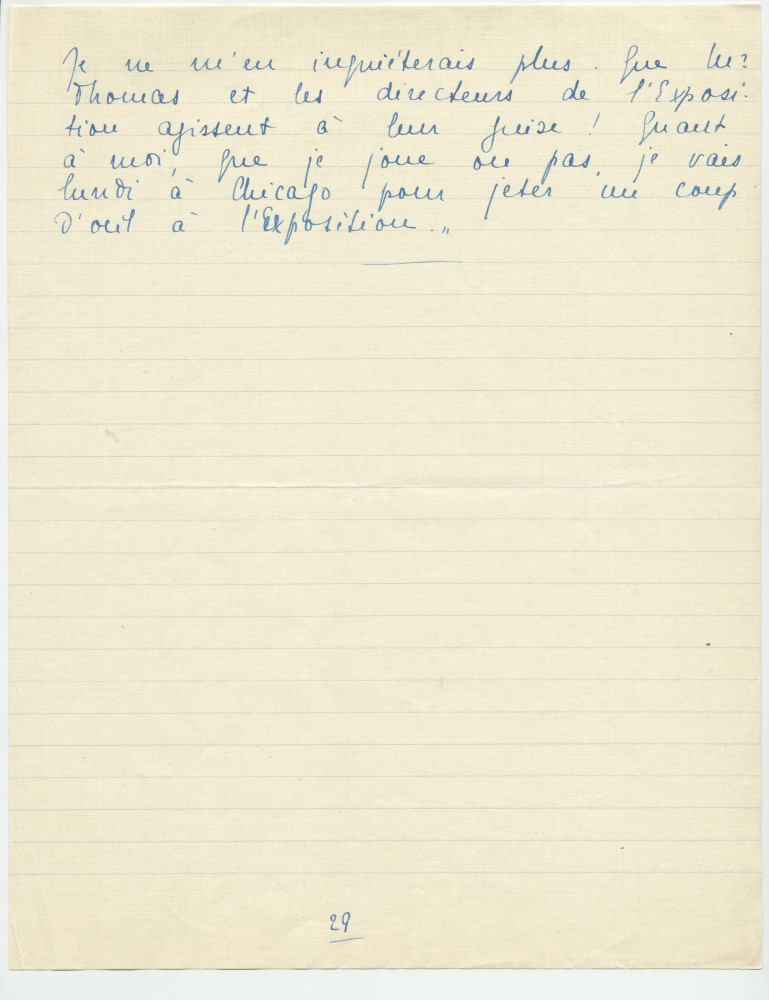 Je ne m'en inquiéterais plus. Que Mr
Thomas et les directeurs de l'Exposi-
tion agissent à leur guise ! Quant
à moi, que je joue ou pas, je vais
lundi à Chicago pour jeter un coup
d'oeil à l'Exposition."
29